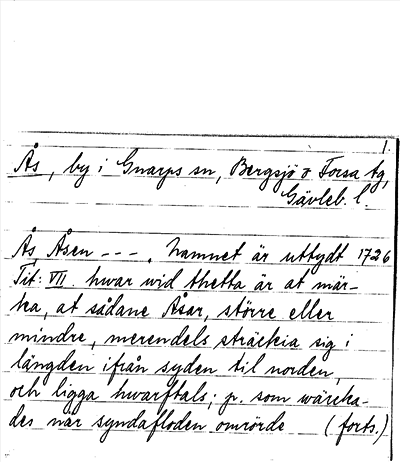 1.
Ås, by i Gnarps sn, Bergsjö o Forsa tg,
Gävleb. l.
Ås, Åsen ---. hamnet är uttydt 1726
Tit: VII. hwar wid thetta är at mär-
ka, at sådane Åsar, större eller
mindre, merendels sträckia sig i
längden ifrån syden til norden,
och ligga hwarftals; p. som wärcka-
des när syndafloden omrörde (forts.)